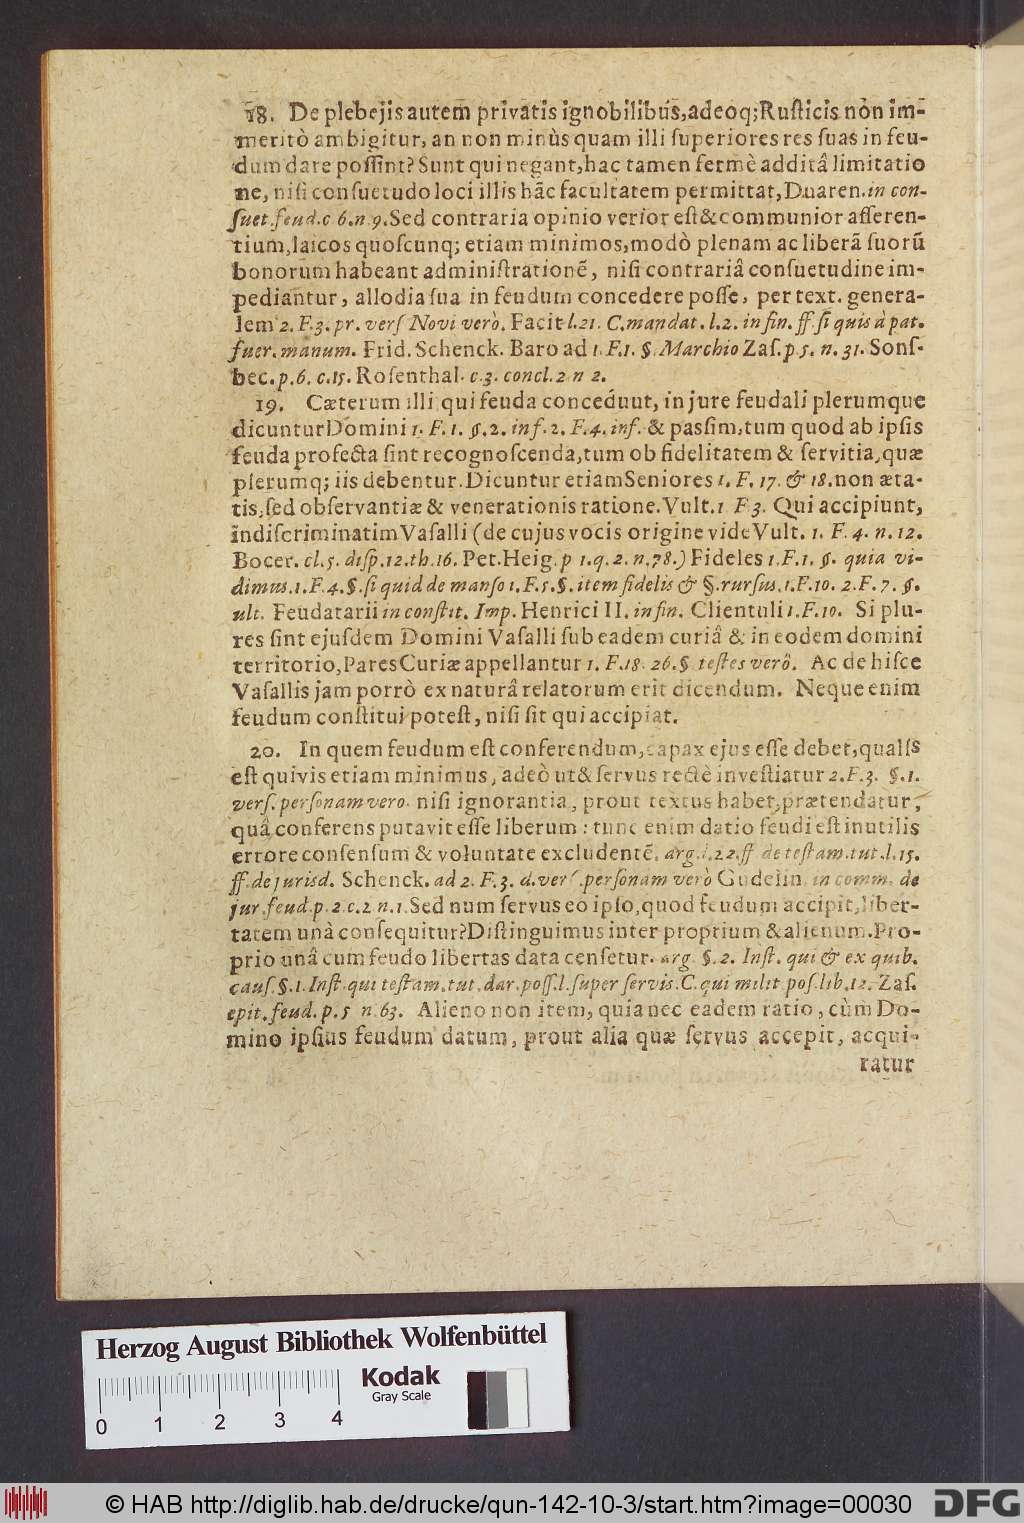 18. De plebejis autem privatis ignobilibus, adeoq; Rusticis non im-
meritò ambigitur, an non minùs quam illi superiores res suas in feu-
dum dare possint? Sunt qui negant, hac tamen fermè additâ limitatio
ne, nisi consuetudo loci illis hãc facultatem permittat, Duaren. in con-
suet. feud. c 6. n 9. Sed contraria opinio verior est & communior asseren-
tium, laicos quoscunq; etiam minimos, modò plenam ac liberã suorũ
bonorum habeant administrationẽ, nisi contrariâ consuetudine im-
pediantur, allodia sua in feudum concedere posse, per text. genera-
lem 2. F. 3. pr. vers Novi verò. Facit l. 21. C. mandat. l. 2. in fin. ff. si quis à pat.
fuer. manum. Frid. Schenck. Baro ad 1. F. 1. §. Marchio Zas. p. 5. n. 31. Sons-
bec. p. 6. c. 15. Rosenthal. c. 3. concl. 2 n 2.
19. Cæterum illi qui feuda concedunt, in jure feudali plerumque
dicuntur Domini 1. F. 1. §. 2. inf. 2. F. 4. inf. & passim, tum quod ab ipsis
feuda profecta sint recognoscenda, tum ob fidelitatem & servitia, quæ
plerumq; iis debentur. Dicuntur etiam Seniores 1. F. 17. & 18. non æta-
tis, sed observantiæ & venerationis ratione. Vult. 1 F 3. Qui accipiunt,
indiscriminatim Vasalli (de cujus vocis origine vide Vult. 1. F. 4. n. 12.
Bocer. cl. 5. disp. 12. th. 16. Pet. Heig. p 1. q. 2. n. 78.) Fideles 1. F. 1. §. quia vi-
dimus. 1. F. 4. §. si quid de manso 1. F. 5. §. item fidelis & §. rursus. 1. F. 10. 2. F. 7. §.
ult. Feudatarii in constit. Imp. Henrici II. in fin. Clientuli 1. F. 10. Si plu-
res sint ejusdem Domini Vasalli sub eadem curiâ & in eodem domini
territorio, Pares Curiæ appellantur 1. F. 18. 26. § testes verò. Ac de hisce
Vasallis jam porrò ex naturâ relatorum erit dicendum. Neque enim
feudum constitui potest, nisi sit qui accipiat.
20. In quem feudum est conferendum, capax ejus esse debet, qualis
est quivis etiam minimus, adeò ut & servus rectè investiatur 2. F. 3. §. 1.
vers. personam vero. nisi ignorantia, prout textus habet, prætendatur,
quâ conferens putavit esse liberum: tunc enim datio feudi est inutilis
errore consensum & voluntate excludentẽ. arg. l. 22. ff de testam. tut. l. 15.
ff. de jurisd. Schenck. ad 2. F. 3. d. vers. personam verò Gudelin. in comm. de
jur. feud. p. 2 c. 2 n. 1. Sed num servus eo ipso, quod feudum accipit, liber-
tatem unà consequitur? Distinguimus inter proprium & alienum. Pro-
prio unâ cum feudo libertas data censetur. arg. §. 2. Inst. qui & ex quib.
caus. §. 1. Inst. qui testam. tut. dar. poss. l. super servis. C. qui milit pos. lib. 12. Zas.
epit. feud. p. 5 n. 63. Alieno non item, quia nec eadem ratio, cùm Do-
mino ipsius feudum datum, prout alia quæ servus accepit, acqui-
ratur
Herzog August Bibliothek Wolfenbüttel
Kodak
Gray Scale
0 1 2 3 4
© HAB http://diglib.hab.de/drucke/qun-142-10-3/start.htm?image=00030
DFG